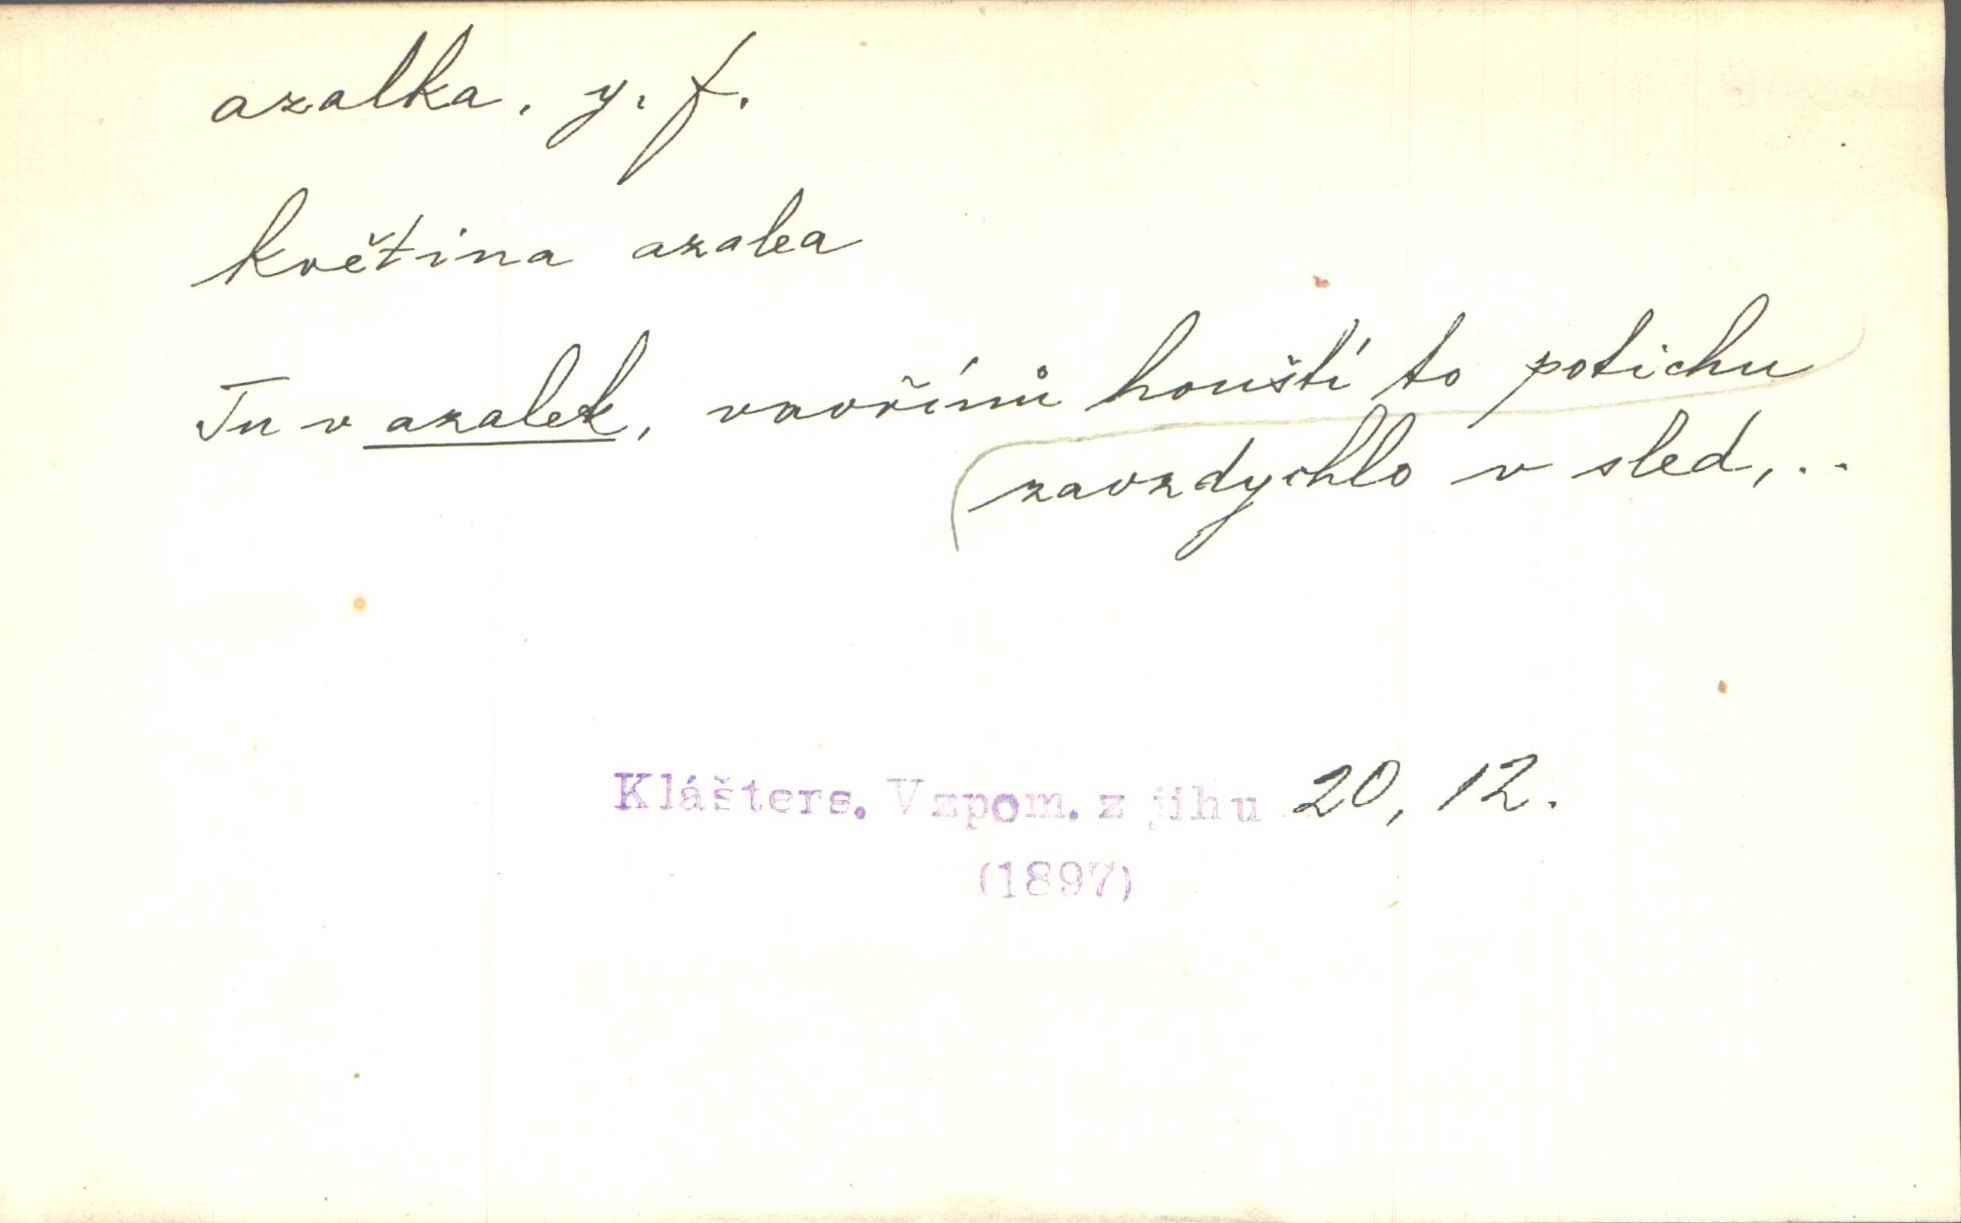 azalka, y, f.
květina azalea
Tu v azalek, vavřínů houští to potichu
zavzdychlo v sled,..
Klášters. Vzpom. z jihu 20, 12.
(1897)